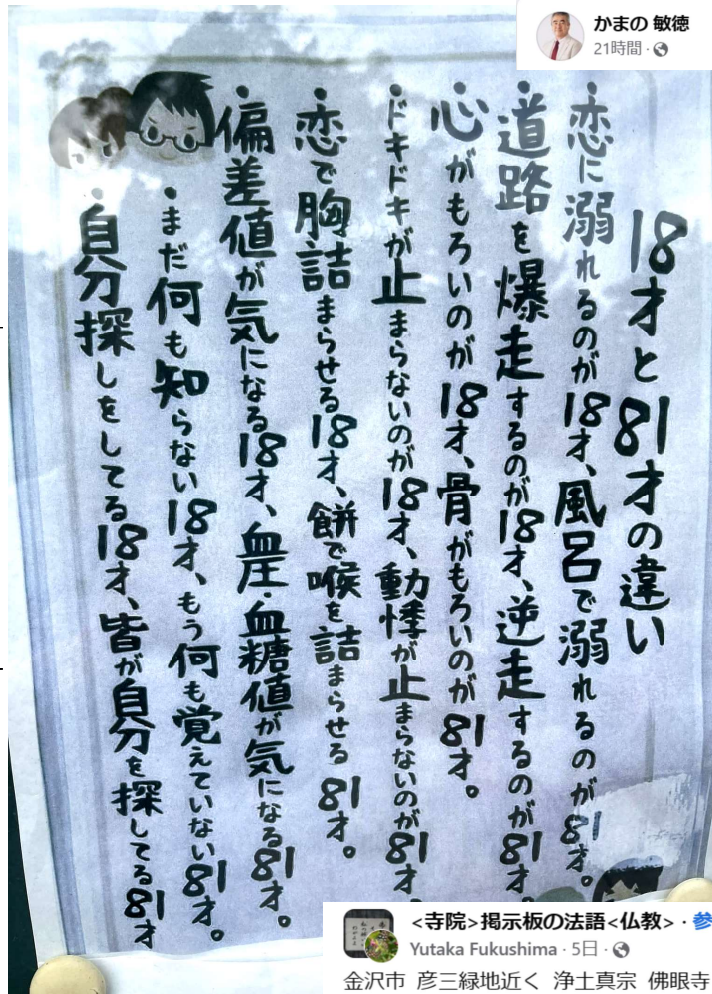 かまの 敏徳
21時間
18才と81才の違い
・恋に溺れるのが18才、風呂で溺れるのが81才。
・道路を爆走するのが18才、逆走するのが81才。
・心がもろいのが18才、骨がもろいのが81才。
・ドキドキが止まらないのが18才、動悸が止まらないのが81才。
・恋で胸詰まらせる18才、餅で喉を詰まらせる81才。
・偏差値が気になる18才、血圧・血糖値が気になる81才。
・まだ何も知らない18才、もう何も覚えていない81才。
・自分探しをしてる18才、皆が自分を探してる81才
<寺院>掲示板の法語<仏教>・参
Yutaka Fukushima・5日・
金沢市 彦三緑地近く 浄土真宗 佛眼寺